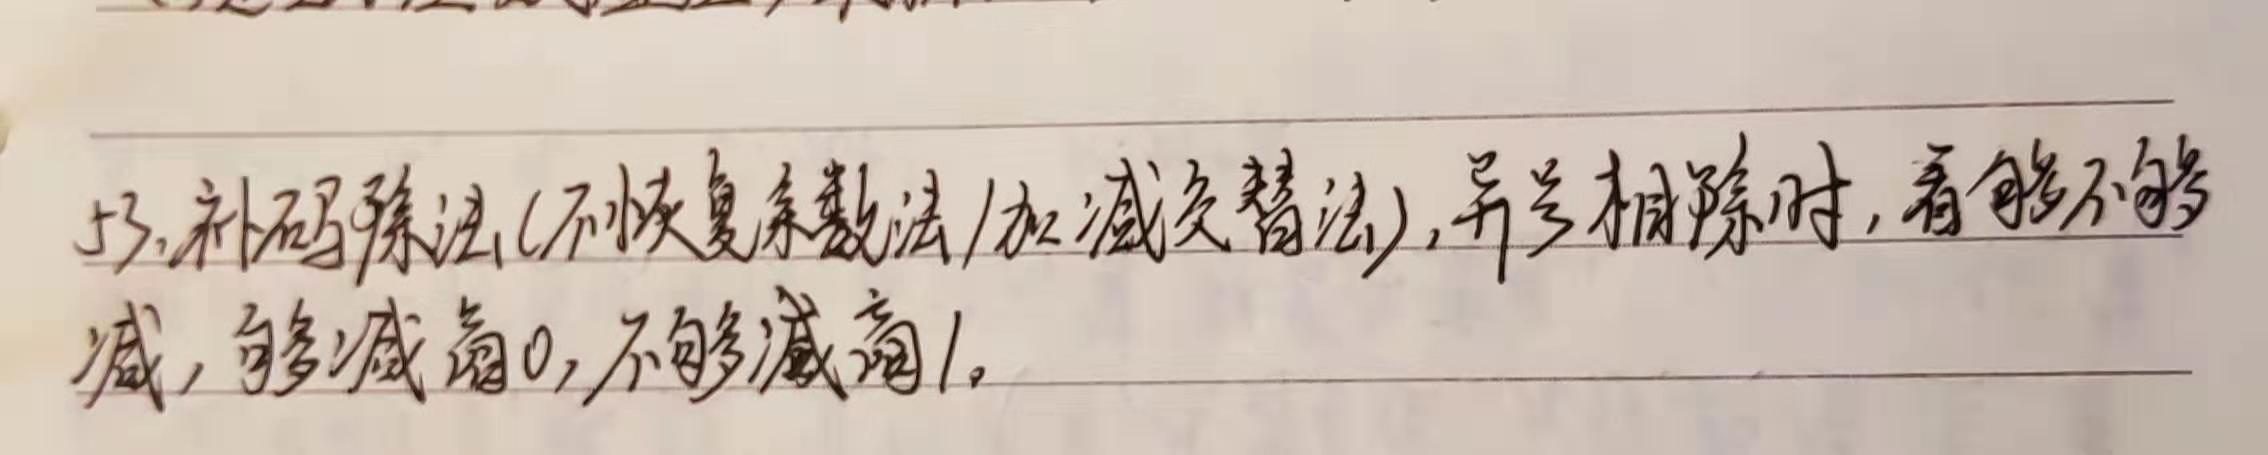 53.补码除法(不恢复余数法/加减交替法),异号相除时,看够不够
减,够减商0,不够减商1。